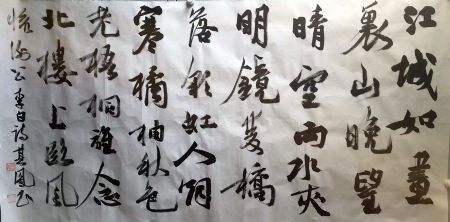 江城如畫
裏山晚望
晴空兩水夾
明鏡雙橋
落彩虹人烟
寒橘柚秋色
老梧桐誰念
北樓上臨風
懷謝公李白詩其鳳書